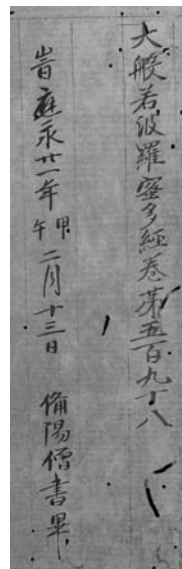 大般若波羅蜜多經卷第五百九十八
旹應永廿一年甲午二月十三日 備陽僧書畢